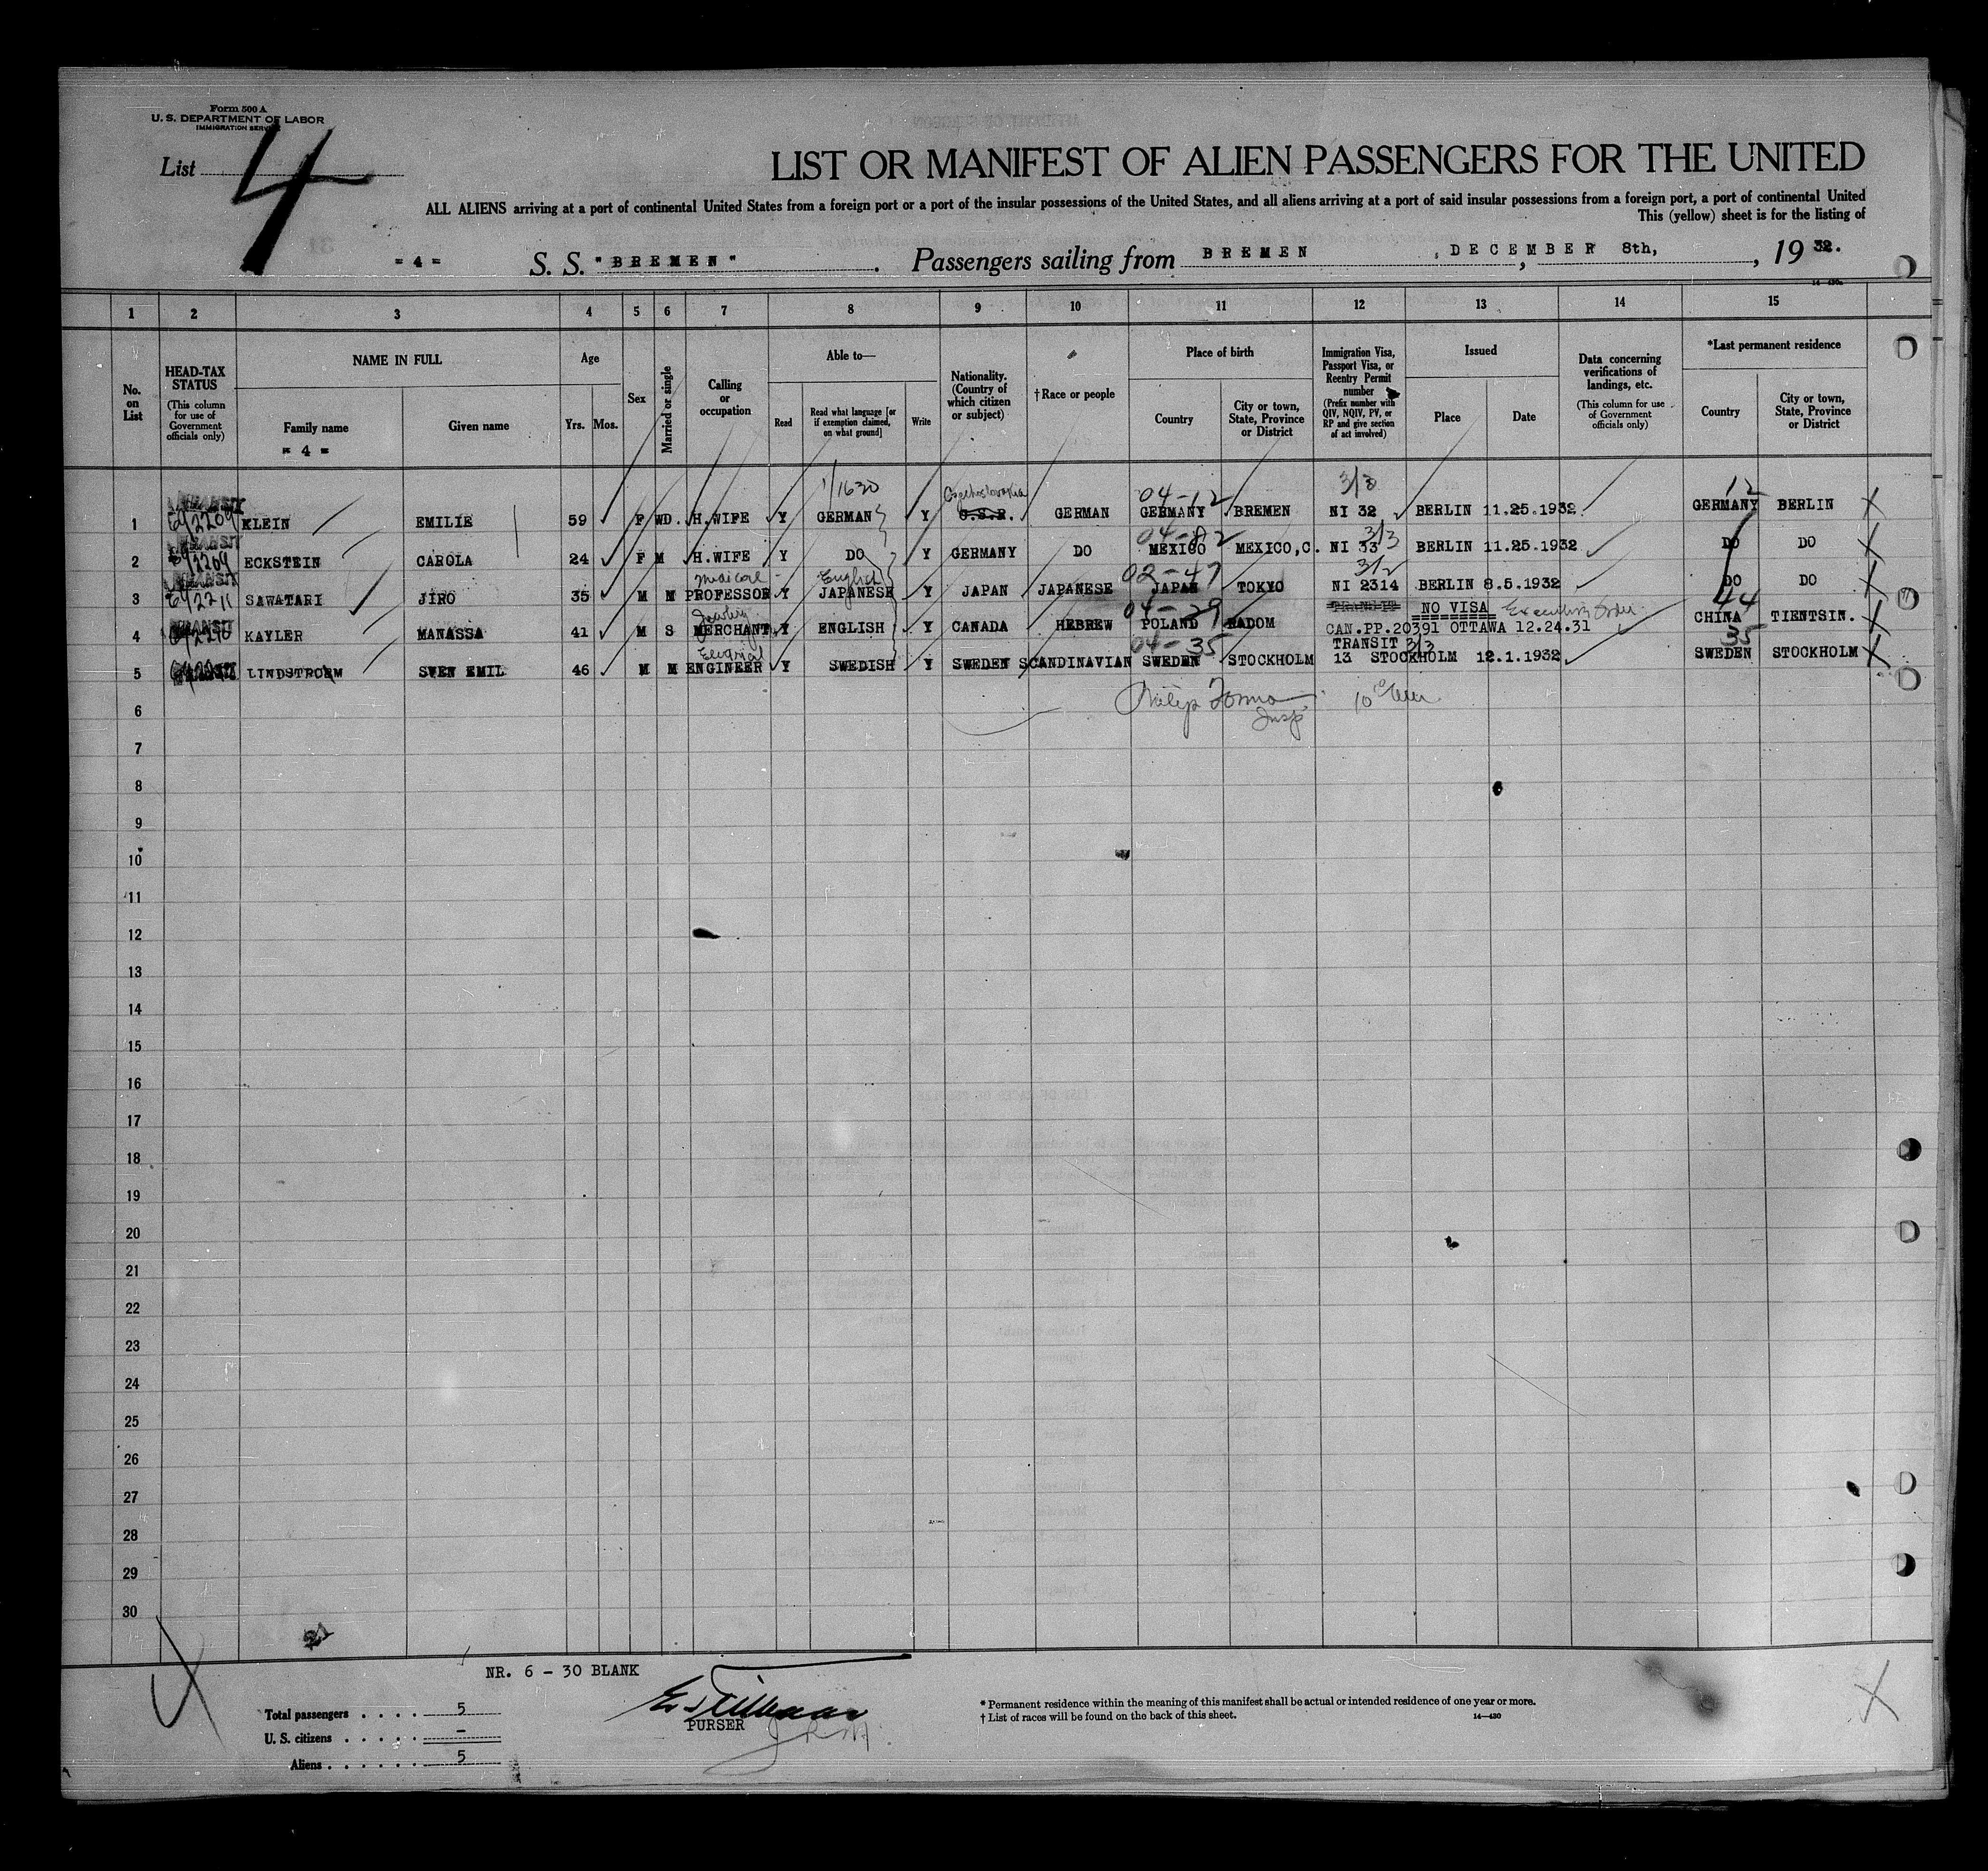 Form 500 A
U. S. DEPARTMENT OF LABOR
IMMIGRATION SERVICE
List 4
LIST OR MANIFEST OF ALIEN PASSENGERS FOR THE UNITED
ALL ALIENS arriving at a port of continental United States from a foreign port or a port of the insular possessions of the United States, and all aliens arriving at a port of said insular possessions from a foreign port, a port of continental United
This (yellow) sheet is for the listing of
= 4 = S. S. "BREMEN". Passengers sailing from BREMEN, DECEMBER 8th, 1932.
1 2 3 4 5 6 7 8 9 10 11 12 13 14 15
No. on List
HEAD-TAX STATUS
(This column for use of Government officials only)
NAME IN FULL
Family name
= 4 =
Given name
Age
Yrs. Mos.
Sex
Married or single
Calling or occupation
Able to—
Read
Read what language [or if exemption claimed, on what ground]
Write
Nationality. (Country of which citizen or subject)
†Race or people
Place of birth
Country
City or town, State, Province or District
Immigration Visa, Passport Visa, or Reentry Permit number
(Prefix number with QIV, NQIV, PV, or RP and give section of act involved)
Issued
Place
Date
Data concerning verifications of landings, etc.
(This column for use of Government officials only)
*Last permanent residence
Country
City or town, State, Province or District
1/1630 Czechoslovakia 04-12 3/3 12
1 KLEIN EMILIE 59 F WD. H.WIFE Y GERMAN Y GERMAN GERMANY BREMEN NI 32 BERLIN 11.25.1932 GERMANY BERLIN
04-82 3/3
2 ECKSTEIN CAROLA 24 F M H.WIFE Y DO Y GERMANY DO MEXICO MEXICO,C. NI 33 BERLIN 11.25.1932 DO DO
medical English 02-47 3/2
3 642211 SAWATARI JIRO 35 M M PROFESSOR Y JAPANESE Y JAPAN JAPANESE JAPAN TOKYO NI 2314 BERLIN 8.5.1932 DO DO
Jewelry 04-29 TRANSIT NO VISA Executive Order 44
4 KAYLER MANASSA 41 M S MERCHANT Y ENGLISH Y CANADA HEBREW POLAND RADOM CAN.PP.20391 OTTAWA 12.24.31 CHINA TIENTSIN.
Electrical 04-35 TRANSIT 3/3 35
5 LINDSTROEM SVEN EMIL 46 M M ENGINEER Y SWEDISH Y SWEDEN SCANDINAVIAN SWEDEN STOCKHOLM 13 STOCKHOLM 12.1.1932 SWEDEN STOCKHOLM
6 Philip Insp
7
8
9
10
11
12
13
14
15
16
17
18
19
20
21
22
23
24
25
26
27
28
29
30
NR. 6 - 30 BLANK
Total passengers . . . . 5
U. S. citizens . . . . . —
Aliens . . . . . . . 5
PURSER
* Permanent residence within the meaning of this manifest shall be actual or intended residence of one year or more.
† List of races will be found on the back of this sheet.
14—430